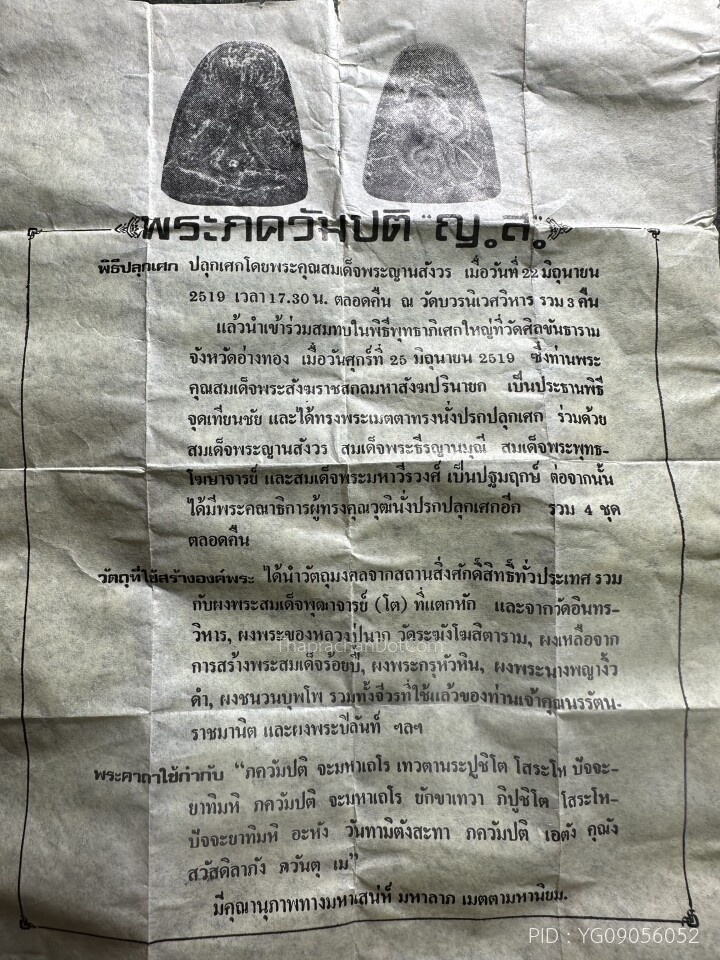 พระภควัมปติ "ญ.ส."
พิธีปลุกเศก ปลุกเศกโดยพระคุณสมเด็จพระญานสังวร เมื่อวันที่ 22 มิถุนายน
2519 เวลา 17.30 น. ตลอดคืน ณ วัดบวรนิเวศวิหาร รวม 3 คืน
แล้วนำเข้าร่วมสมทบในพิธีพุทธาภิเศกใหญ่ที่วัดศิลขันธาราม
จังหวัดอ่างทอง เมื่อวันศุกร์ที่ 25 มิถุนายน 2519 ซึ่งท่านพระ
คุณสมเด็จพระสังฆราชสกลมหาสังฆปรินายก เป็นประธานพิธี
จุดเทียนชัย และได้ทรงพระเมตตาทรงนั่งปรกปลุกเศก ร่วมด้วย
สมเด็จพระญานสังวร สมเด็จพระธีรญานมุณี สมเด็จพระพุทธ-
โฆษาจารย์ และสมเด็จพระมหาวีรวงศ์ เป็นปฐมฤกษ์ ต่อจากนั้น
ได้มีพระคณาธิการผู้ทรงคุณวุฒินั่งปรกปลุกเศกอีก รวม 4 ชุด
ตลอดคืน
วัตถุที่ใช้สร้างองค์พระ ได้นำวัตถุมงคลจากสถานสิ่งศักดิ์สิทธิ์ทั่วประเทศ รวม
กับผงพระสมเด็จพุฒาจารย์ (โต) ที่แตกหัก และจากวัดอินทร-
วิหาร, ผงพระของหลวงปู่นาก วัดระฆังโฆสิตาราม, ผงเหลือจาก
การสร้างพระสมเด็จร้อยปี, ผงพระกรุหัวหิน, ผงพระนางพญางิ้ว
ดำ, ผงชนวนบุพโพ รวมทั้งจีวรที่ใช้แล้วของท่านเจ้าคุณนรรัตน-
ราชมานิต และผงพระปิลันท์ ฯลฯ
พระคาถาใช้กำกับ "ภควัมปติ จะมหาเถโร เทวตานระปูชิโต โสระโห ปัจจะ-
ยาทิมหิ ภควัมปติ จะมหาเถโร ยักขาเทวา ภิปูชิโต โสระโห-
ปัจจะยาทิมหิ อะหัง วันทามิตังสะทา ภควัมปติ เอตัง คุณัง
สวัสดิลาภัง ภวันตุ เม"
มีคุณานุภาพทางมหาเสน่ห์ มหาลาภ เมตตามหานิยม.
ThaprachanDotCom
PID : YG09056052